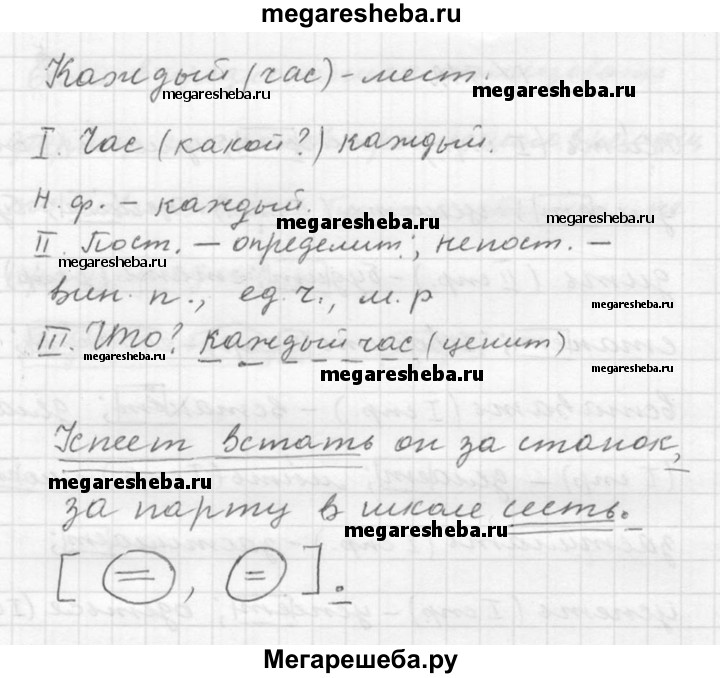 megaresheba.ru
Каждый (час) - мест.
megaresheba.ru megaresheba.ru
I. Час (какой?) каждый.
Н. ф. - каждый.
megaresheba.ru megaresheba.ru
II. Пост. - определит.; непост. -
megaresheba.ru
вин. п., ед. ч., м. р
megaresheba.ru
III. Что? каждый час (ценит)
megaresheba.ru megaresheba.ru megaresheba.ru
Успеет встать он за станок,
megaresheba.ru
за парту в школе сесть.
megaresheba.ru
[ (=), (=) ].
Мегарешеба.ру